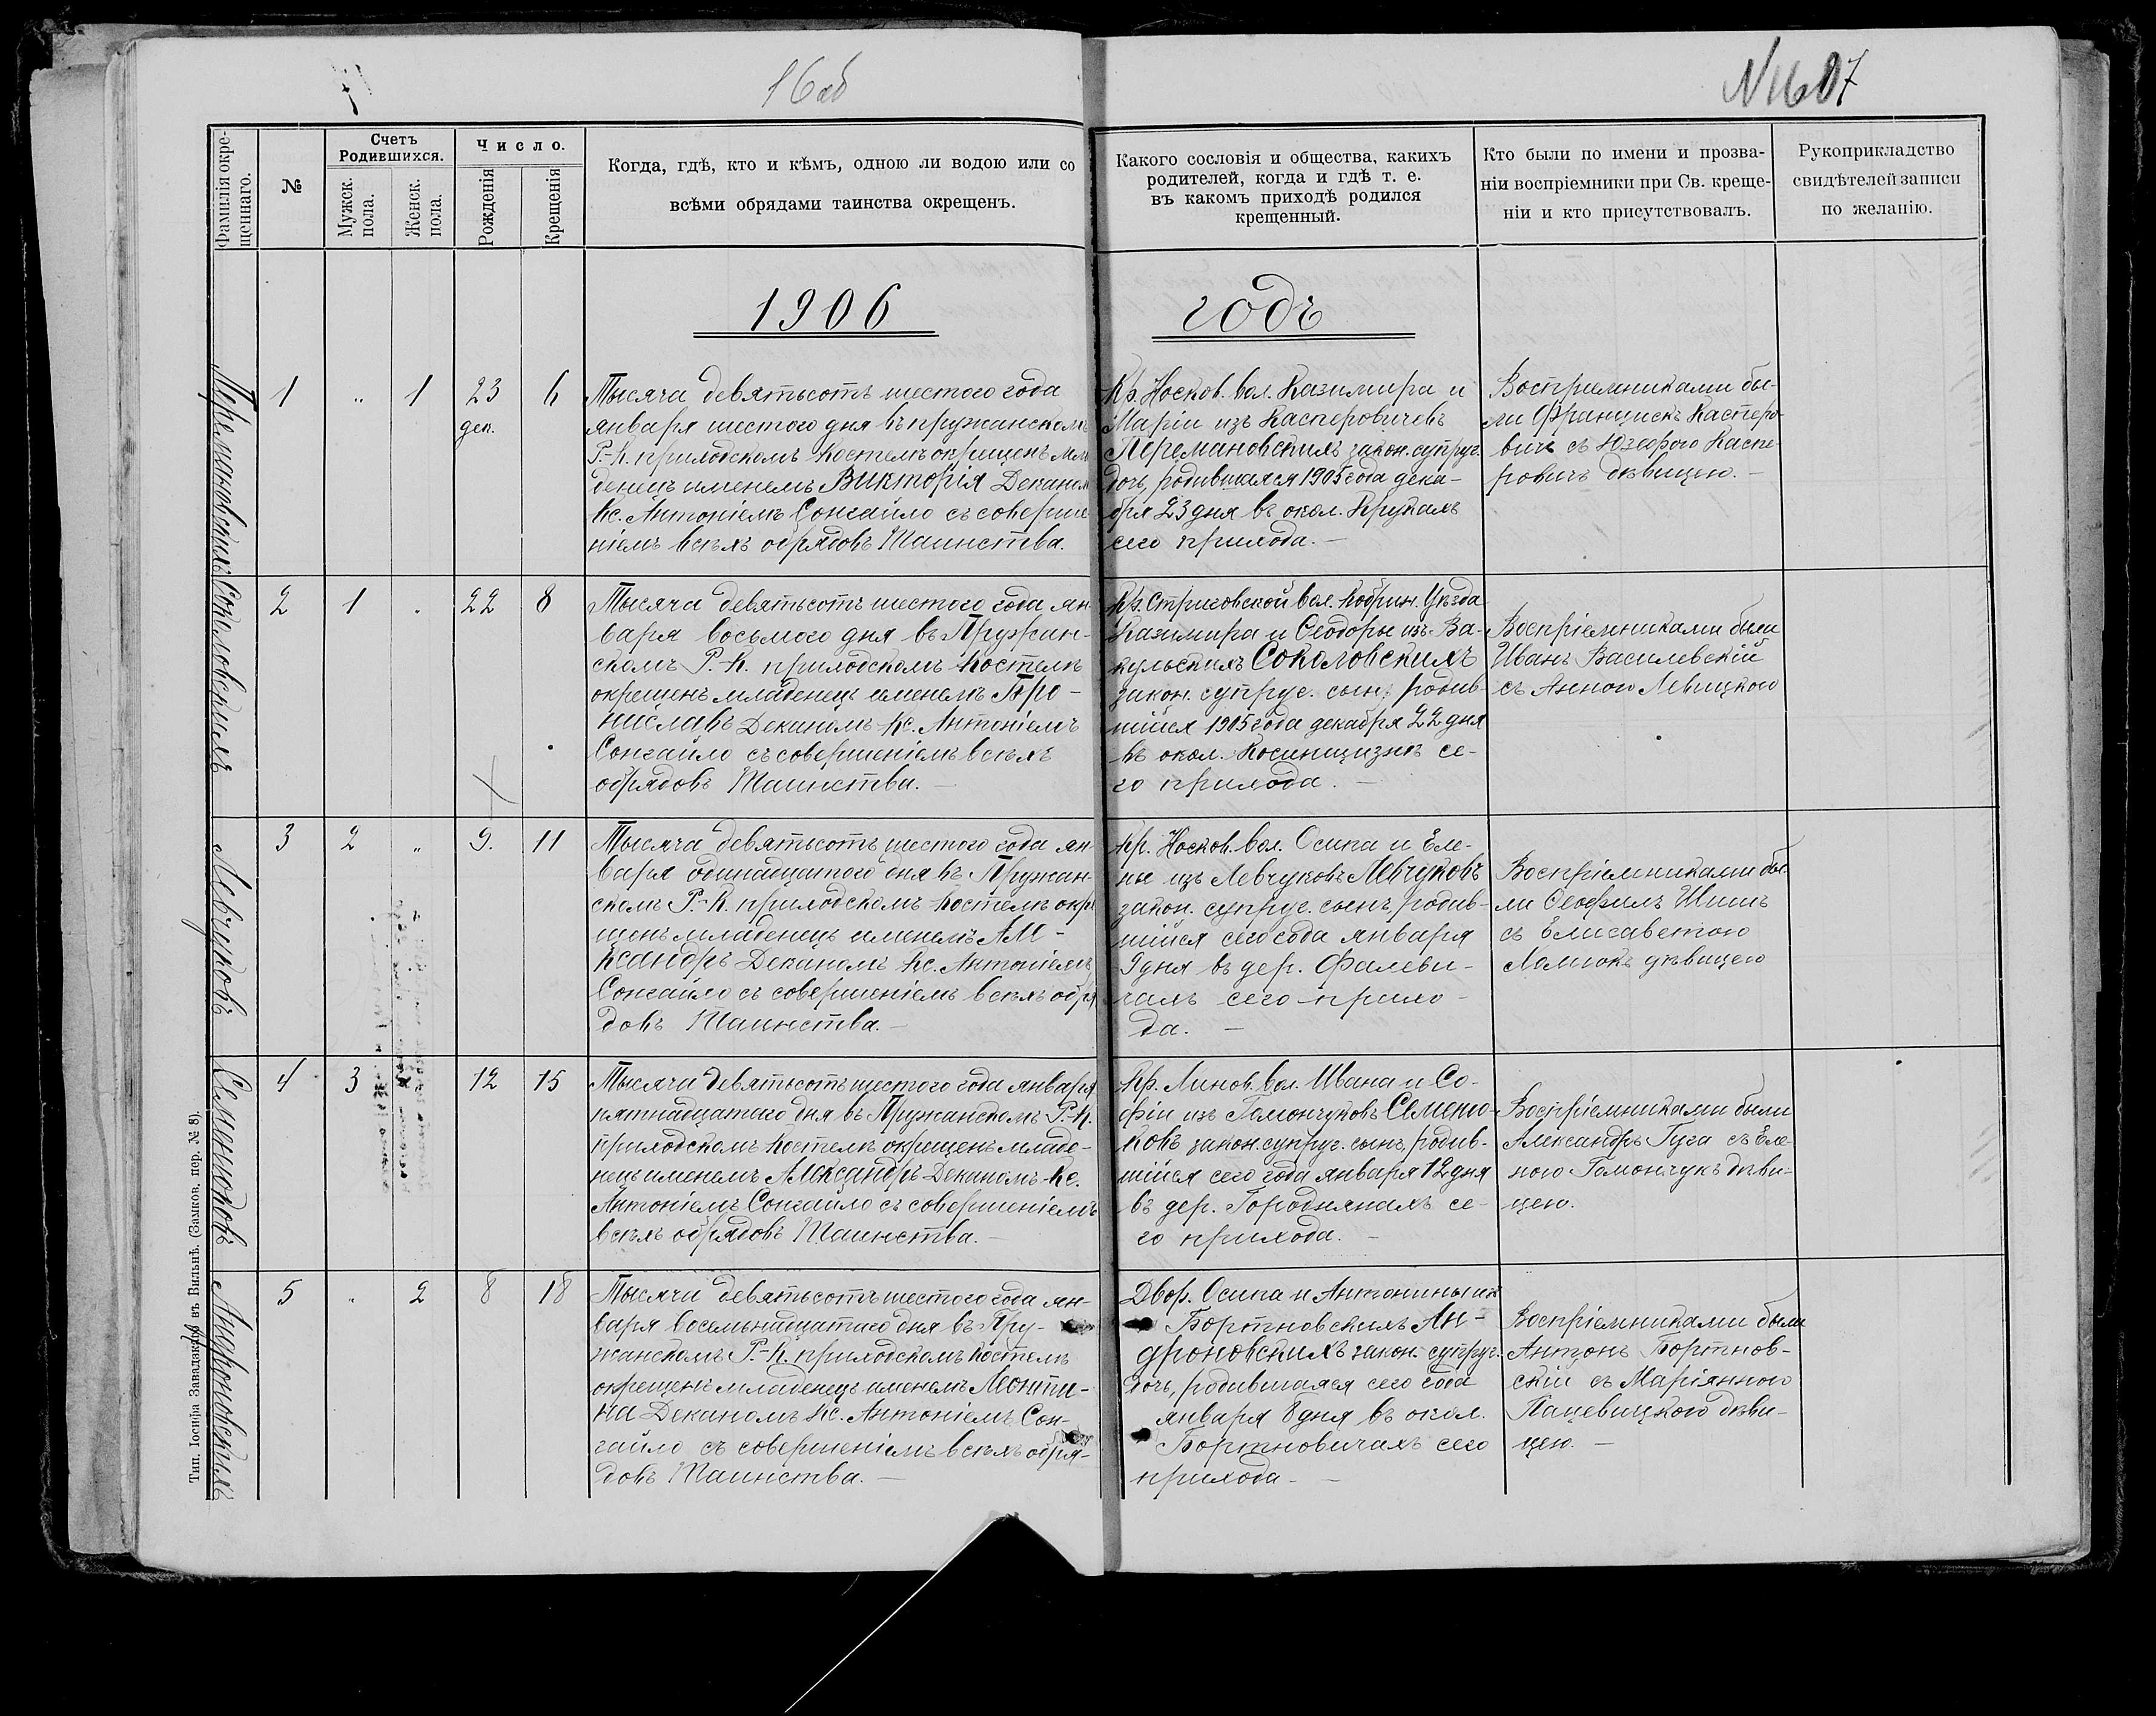 16об
N1607
Фамилія окре-
щеннаго.
№
Счетъ
Родившихся.
Мужск.
пола.
Женск.
пола.
Число.
Рожденія
Крещенія
Когда, гдѣ, кто и кѣмъ, одною ли водою или со
всѣми обрядами таинства окрещенъ.
Какого сословія и общества, какихъ
родителей, когда и гдѣ т. е.
въ какомъ приходѣ родился
крещенный.
Кто были по имени и прозва-
ніи воспріемники при Св. креще-
ніи и кто присутствовалъ.
Рукоприкладство
свидѣтелей записи
по желанію.
1906 годъ
Перемановскихъ
1 " 1 23 6
дек.
Тысяча девятьсотъ шестого года
января шестого дня въ пружанскомъ
Р.-К. приходскомъ костелѣ окрещенъ мла
денецъ именемъ Викторія Деканомъ
Кс. Антоніемъ Сонгайло съ соверше
ніемъ всѣхъ обрядовъ Таинства.
Кр. Носков. вол. Казимира и
Маріи изъ Касперовичовъ
Перемановскихъ закон. супруг.
дочь, родившаяся 1905 года дека-
бря 23 дня въ окол. Крукахъ
сего прихода. —
Воспріемниками бы-
ли Францискъ Касперо-
вичъ съ Юзефою Каспе-
ровичъ дѣвицею. —
Соколовскихъ
2 1 . 22 8
Тысяча девятьсотъ шестого года ян-
варя восьмого дня въ Пружан-
скомъ Р.-К. приходскомъ костелѣ
окрещенъ младенецъ именемъ Бро-
ниславъ Деканомъ Кс. Антоніемъ
Сонгайло съ совершеніемъ всѣхъ
обрядовъ Таинства. —
Кр. Стриговской вол. Кобрин. Уѣзда
Казимира и Ѳеодоры изъ Ва-
кульскихъ Соколовскихъ
закон. супруг. сынъ, родив-
шійся 1905 года декабря 22 дня
въ окол. Косинщизнѣ се-
го прихода. —
Воспріемниками были
Иванъ Василевскій
съ Анною Левицкою
Левчуковъ
3 2 " 9. 11
Тысяча девятьсотъ шестого года ян
варя одинадцатого дня въ Пружан-
скомъ Р.-К. приходскомъ костелѣ окре
щенъ младенецъ именемъ Але-
ксандръ Деканомъ Кс. Антоніемъ
Сонгайло съ совершеніемъ всѣхъ обря
довъ Таинства. —
Кр. Носков. вол. Осипа и Еле-
ны изъ Левчуковъ Левчуковъ
закон. супруг. сынъ, родив-
шійся сего года января
9 дня въ дер. Фалеви-
чахъ сего прихо-
да. —
Воспріемниками бы-
ли Ѳеофилъ Шишъ
съ Елисаветою
дѣвицею
Семенюковъ
4 3 12 15
Тысяча девятьсотъ шестого года января
пятнадцатаго дня въ Пружанскомъ Р.-К.
приходскомъ костелѣ окрещенъ младе-
нецъ именемъ Александръ Деканомъ Кс.
Антоніемъ Сонгайло съ совершеніемъ
всѣхъ обрядовъ Таинства. —
Кр. Линов. вол. Ивана и Со-
фіи изъ Гомончуковъ Семеню-
ковъ закон. супруг. сынъ, родив-
шійся сего года января 12 дня
въ дер. Городнянахъ се-
го прихода. —
Воспріемниками были
Александръ Гуга съ Еле-
ною Гомончукъ дѣви-
цею.
Андроновскихъ
5 " 2 8 18
Тысяча девятьсотъ шестого года ян-
варя восемьнадцатаго дня въ Пру-
жанскомъ Р.-К. приходскомъ костелѣ
окрещенъ младенецъ именемъ Леонти-
на Деканомъ Кс. Антоніемъ Сон-
гайло съ совершеніемъ всѣхъ обря-
довъ Таинства. —
Двор. Осипа и Антонины изъ
Бортновскихъ Ан-
дроновскихъ закон. супруг.
дочь, родившаяся сего года
января 8 дня въ окол.
Бортновичахъ сего
прихода. —
Воспріемниками были
Антонъ Бортнов-
скій съ Маріянною
Пацевицкою дѣви-
цею. —
Тип. Іосифа Завадзкаго въ Вильнѣ. (Замков. пер. № 8).